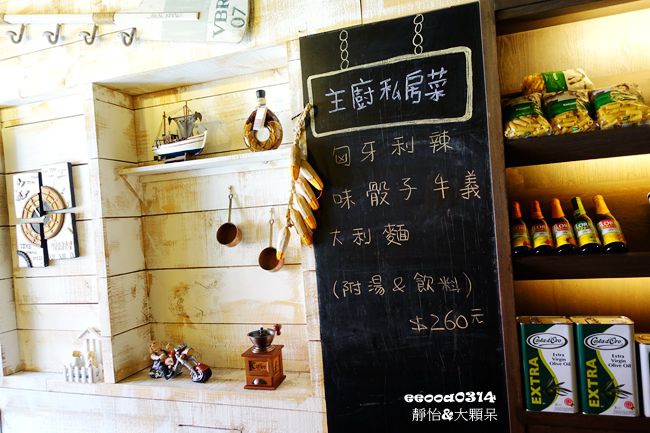 VBR
07
主廚私房菜
匈牙利辣
味骰子牛義
大利麵
(附湯&飲料)
$260元
Costa d'Oro
Extra Virgin
Olive Oil
EXTRA
Costa d'Oro
Extra Virgin
Olive Oil
EXTRA
eeooa0314
靜怡&大顆呆